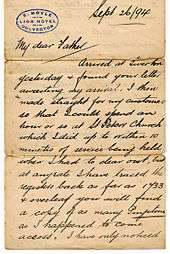 E. HOYLE
LION HOTEL
DULVERTON
Sept 26/94
My dear Father
Arrived at Tiverton
yesterday & found your letter
awaiting my arrival. I then
made straight for my customers
so that I could spend an
hour or so at St Peters Church
which I did up to within 10
minutes of service being held
when I had to clear out, but
at anyrate I have traced the
registers back as far as 1733
& overleaf you will find
a copy of as many
as I happened to come
across. I have only noticed